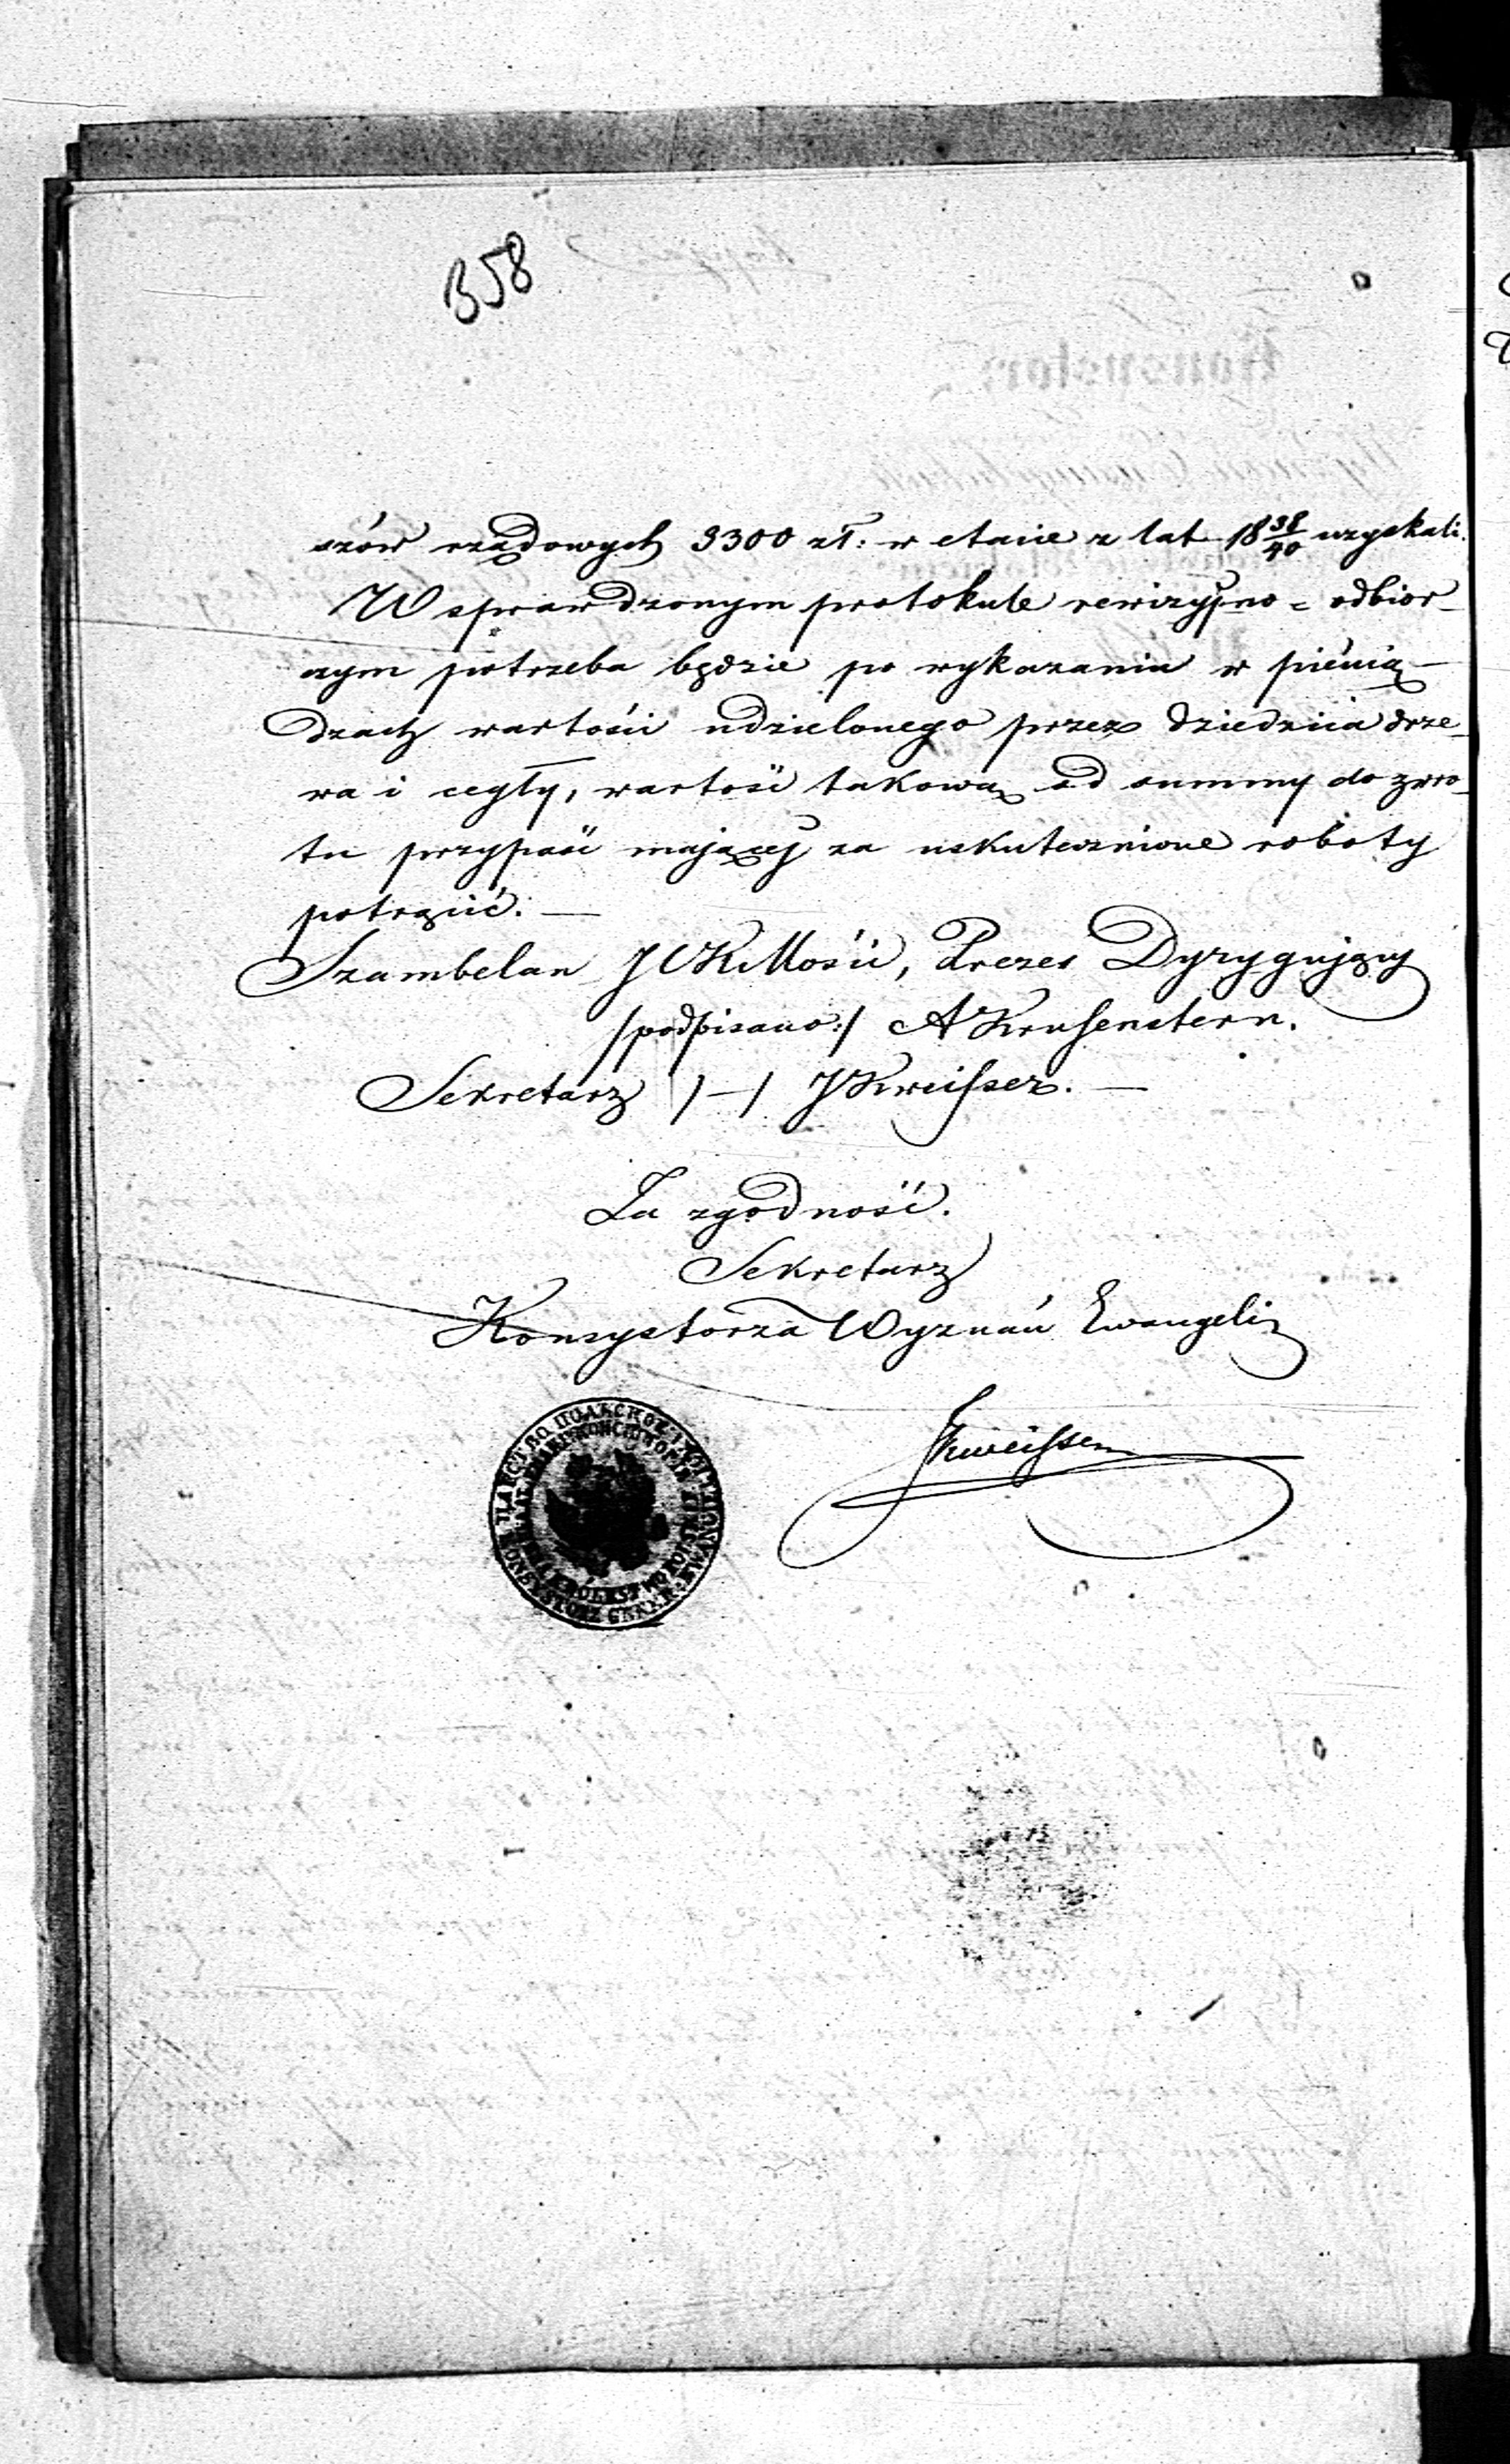 358
szów rządowych 3300 zł: w etacie z lat 18 38/40 uzyskali.
W sprawdzonym protokule rewizyjno = odbior-
czym potrzeba będzie po wykazaniu w pienią-
dzach wartości udzielonego przez dziedzica drze-
wa i cegły, wartość takową od summy do zwro-
tu przypaść mającej za uskutecznione roboty
potrącić. —
Szambelan JCKMości, Prezes Dyrygujący
/podpisano:/ A Krusenstern.
Sekretarz /—/ J Kweisser. —
Za zgodność.
Sekretarz
Konsystorza Wyznań Ewangeli
JKweisser
ЦАРСТВО ПОЛЬСКОЕ
KRÓLESTWO POLSKIE
KONSYSTORZ GENER. EWANGELICKI